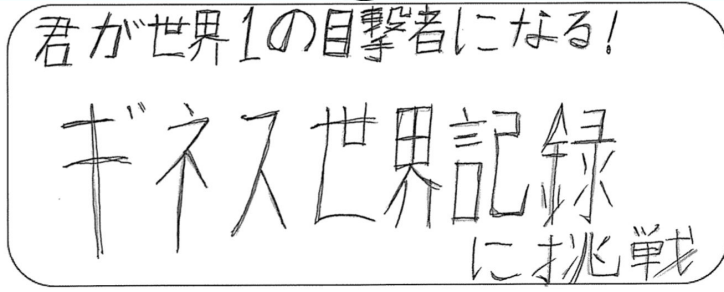 君が世界1の目撃者になる!
ギネス世界記録
に挑戦